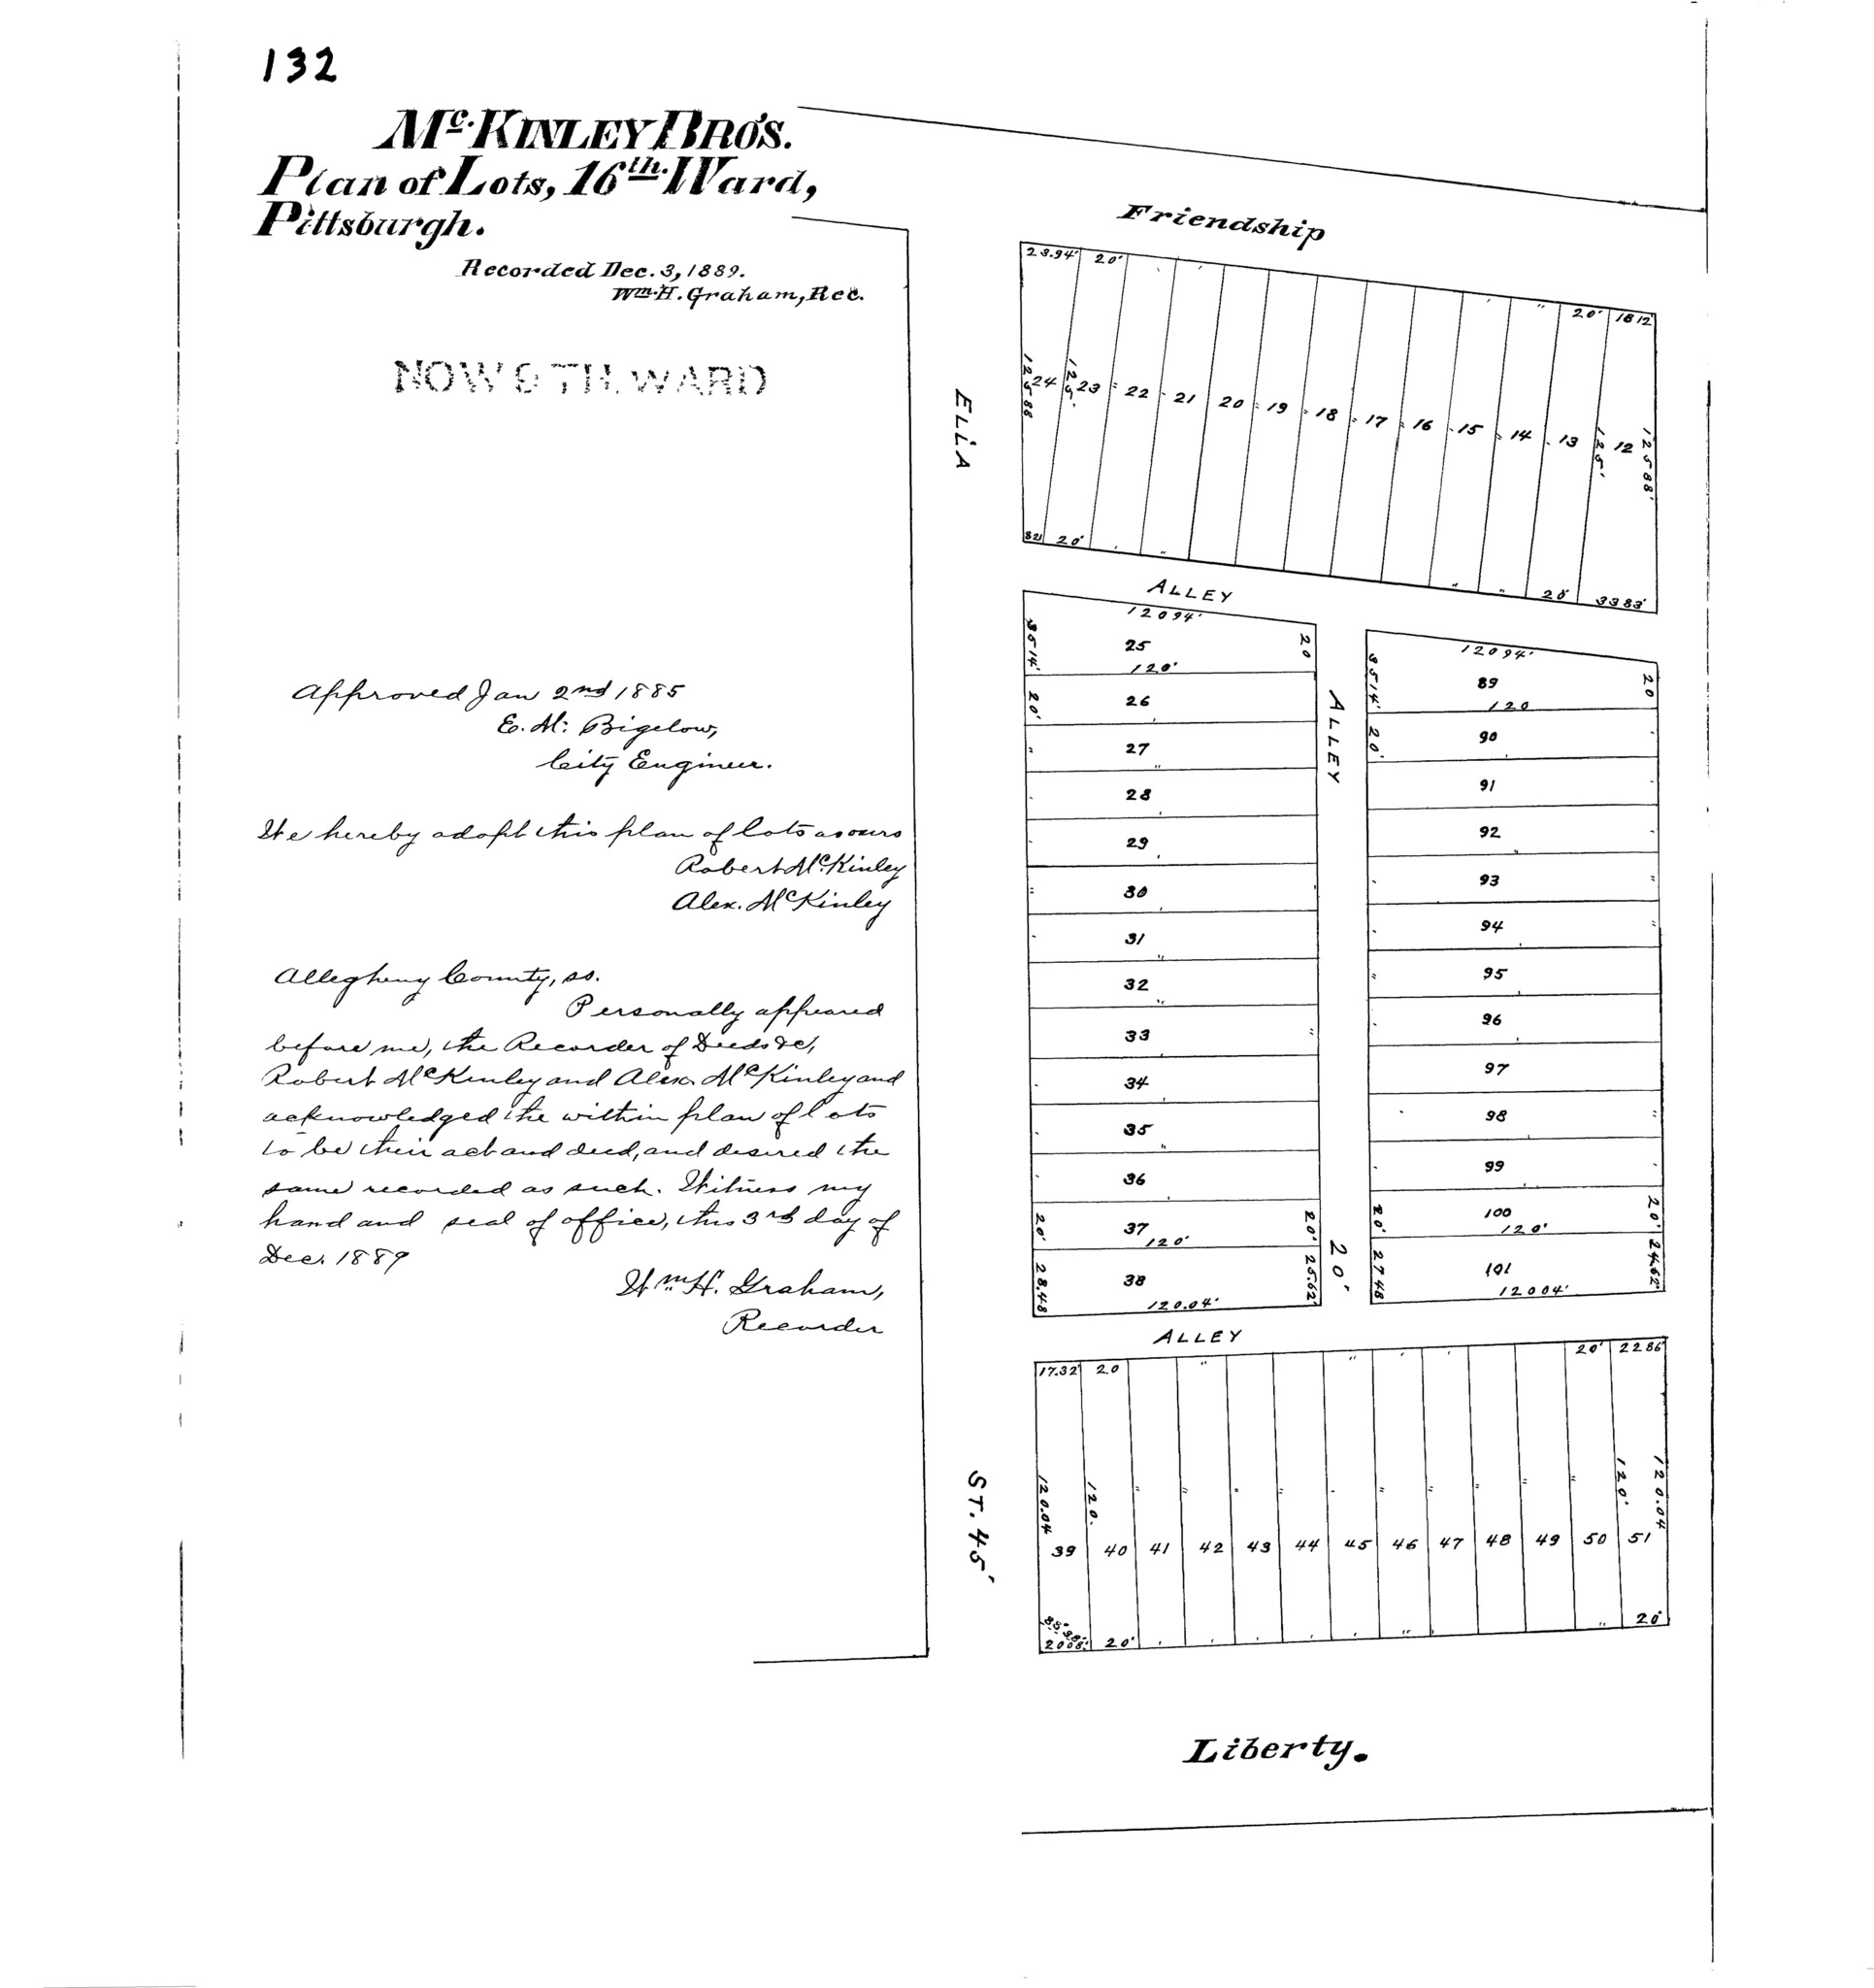 132
Mc. KINLEY BRO'S.
Plan of Lots, 16th. Ward,
Pittsburgh.
Recorded Dec. 3, 1889.
Wm. H. Graham, Rec.
NOW 9 TH. WARD
Approved Jan 2nd 1885
E. M. Bigelow,
City Engineer.
We hereby adopt this plan of lots as ours
Robert McKinley
Alex. McKinley
Allegheny County, ss.
Personally appeared
before me, the Recorder of Deeds &c,
Robert McKinley and Alex. McKinley and
acknowledged the within plan of lots
to be their act and deed, and desired the
same recorded as such. Witness my
hand and seal of office, this 3rd day of
Dec. 1889
Wm H. Graham,
Recorder
Friendship
ELLA
23.94' 20' 20' 1812
12588 24 125. 23 22 21 20 19 18 17 16 15 14 13 125' 12 12588'
821 20' 20' 3383'
ALLEY
12094'
3514' 25 20
120'
20' 26
27
28
29
30
31
32
33
34
35
36
20' 37 20'
120'
28.48 38 25.62'
120.04'
ALLEY
20'
12094'
3514' 89 20
120
20' 90
91
92
93
94
95
96
97
98
99
20' 100 20'
120'
2748 101 24.62'
12004'
ALLEY
17.32 20 20' 2286'
120.04 120. 120' 120.04
39 40 41 42 43 44 45 46 47 48 49 50 51
2008' 20' 20'
ST. 45'
Liberty.